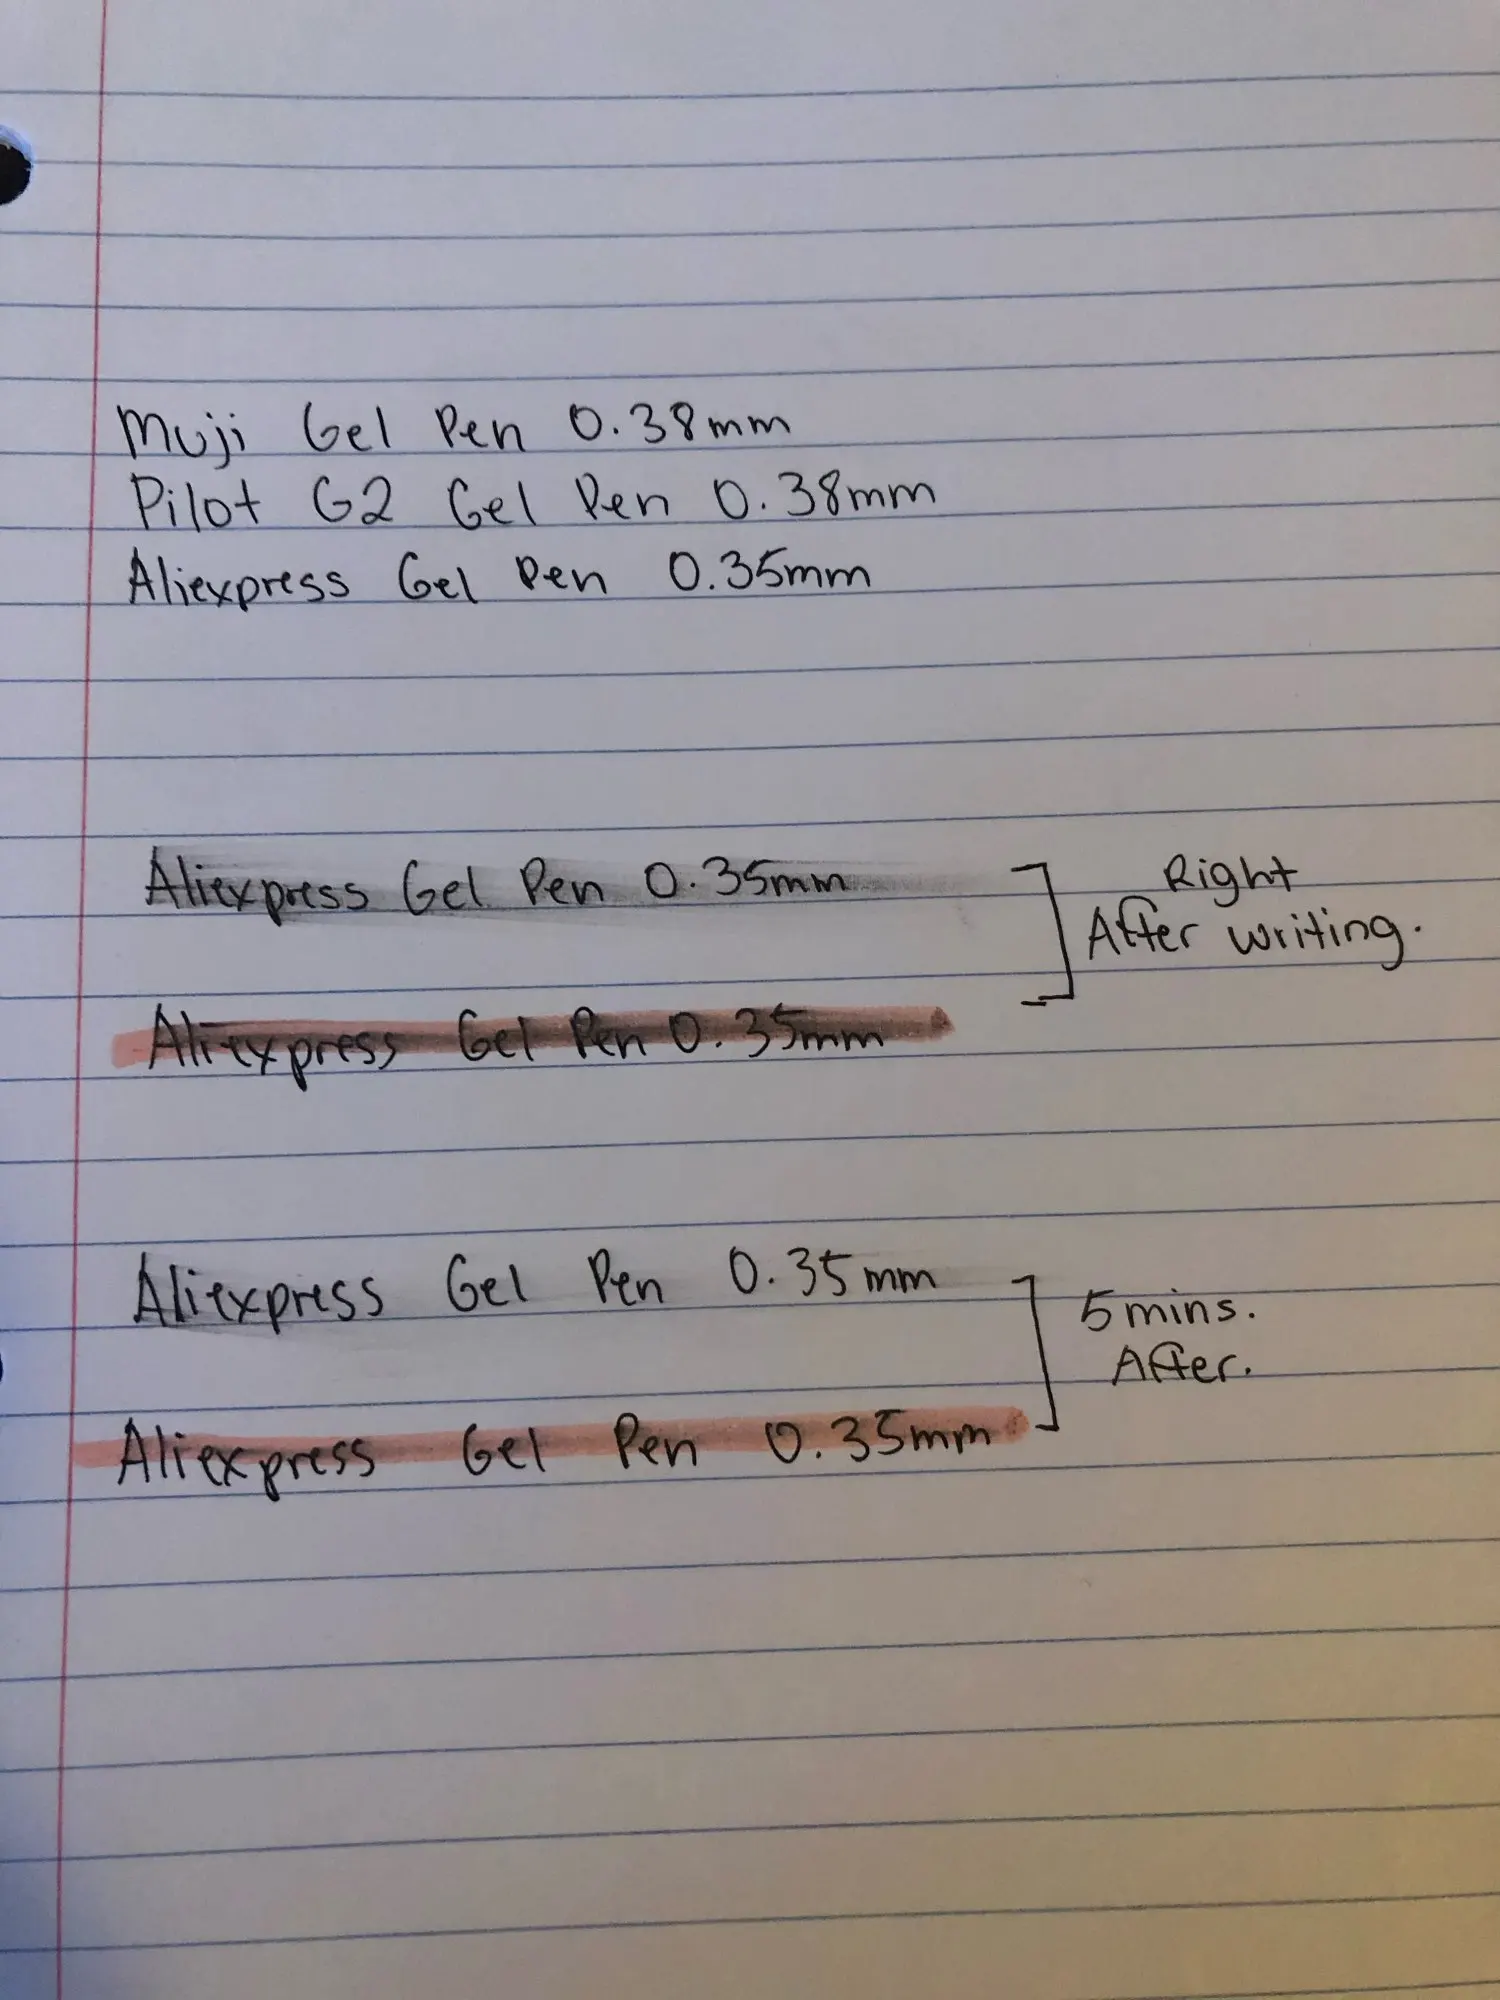 Muji Gel Pen 0.38mm
Pilot G2 Gel Pen 0.38mm
Aliexpress Gel Pen 0.35mm
Aliexpress Gel Pen 0.35mm
Right
After writing.
Aliexpress Gel Pen 0.35mm
Aliexpress Gel Pen 0.35mm
5mins.
After.
Aliexpress Gel Pen 0.35mm